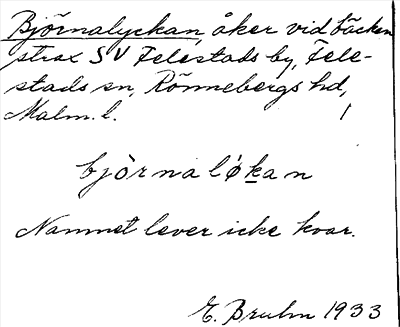 Björnalyckan, åker vid bäcken
strax SV Felestads by, Fele-
stads sn, Rönnebergs hd,
Malm. l.
bjὸrnaló̷kan
Namnet lever icke kvar.
E. Bruhn 1933